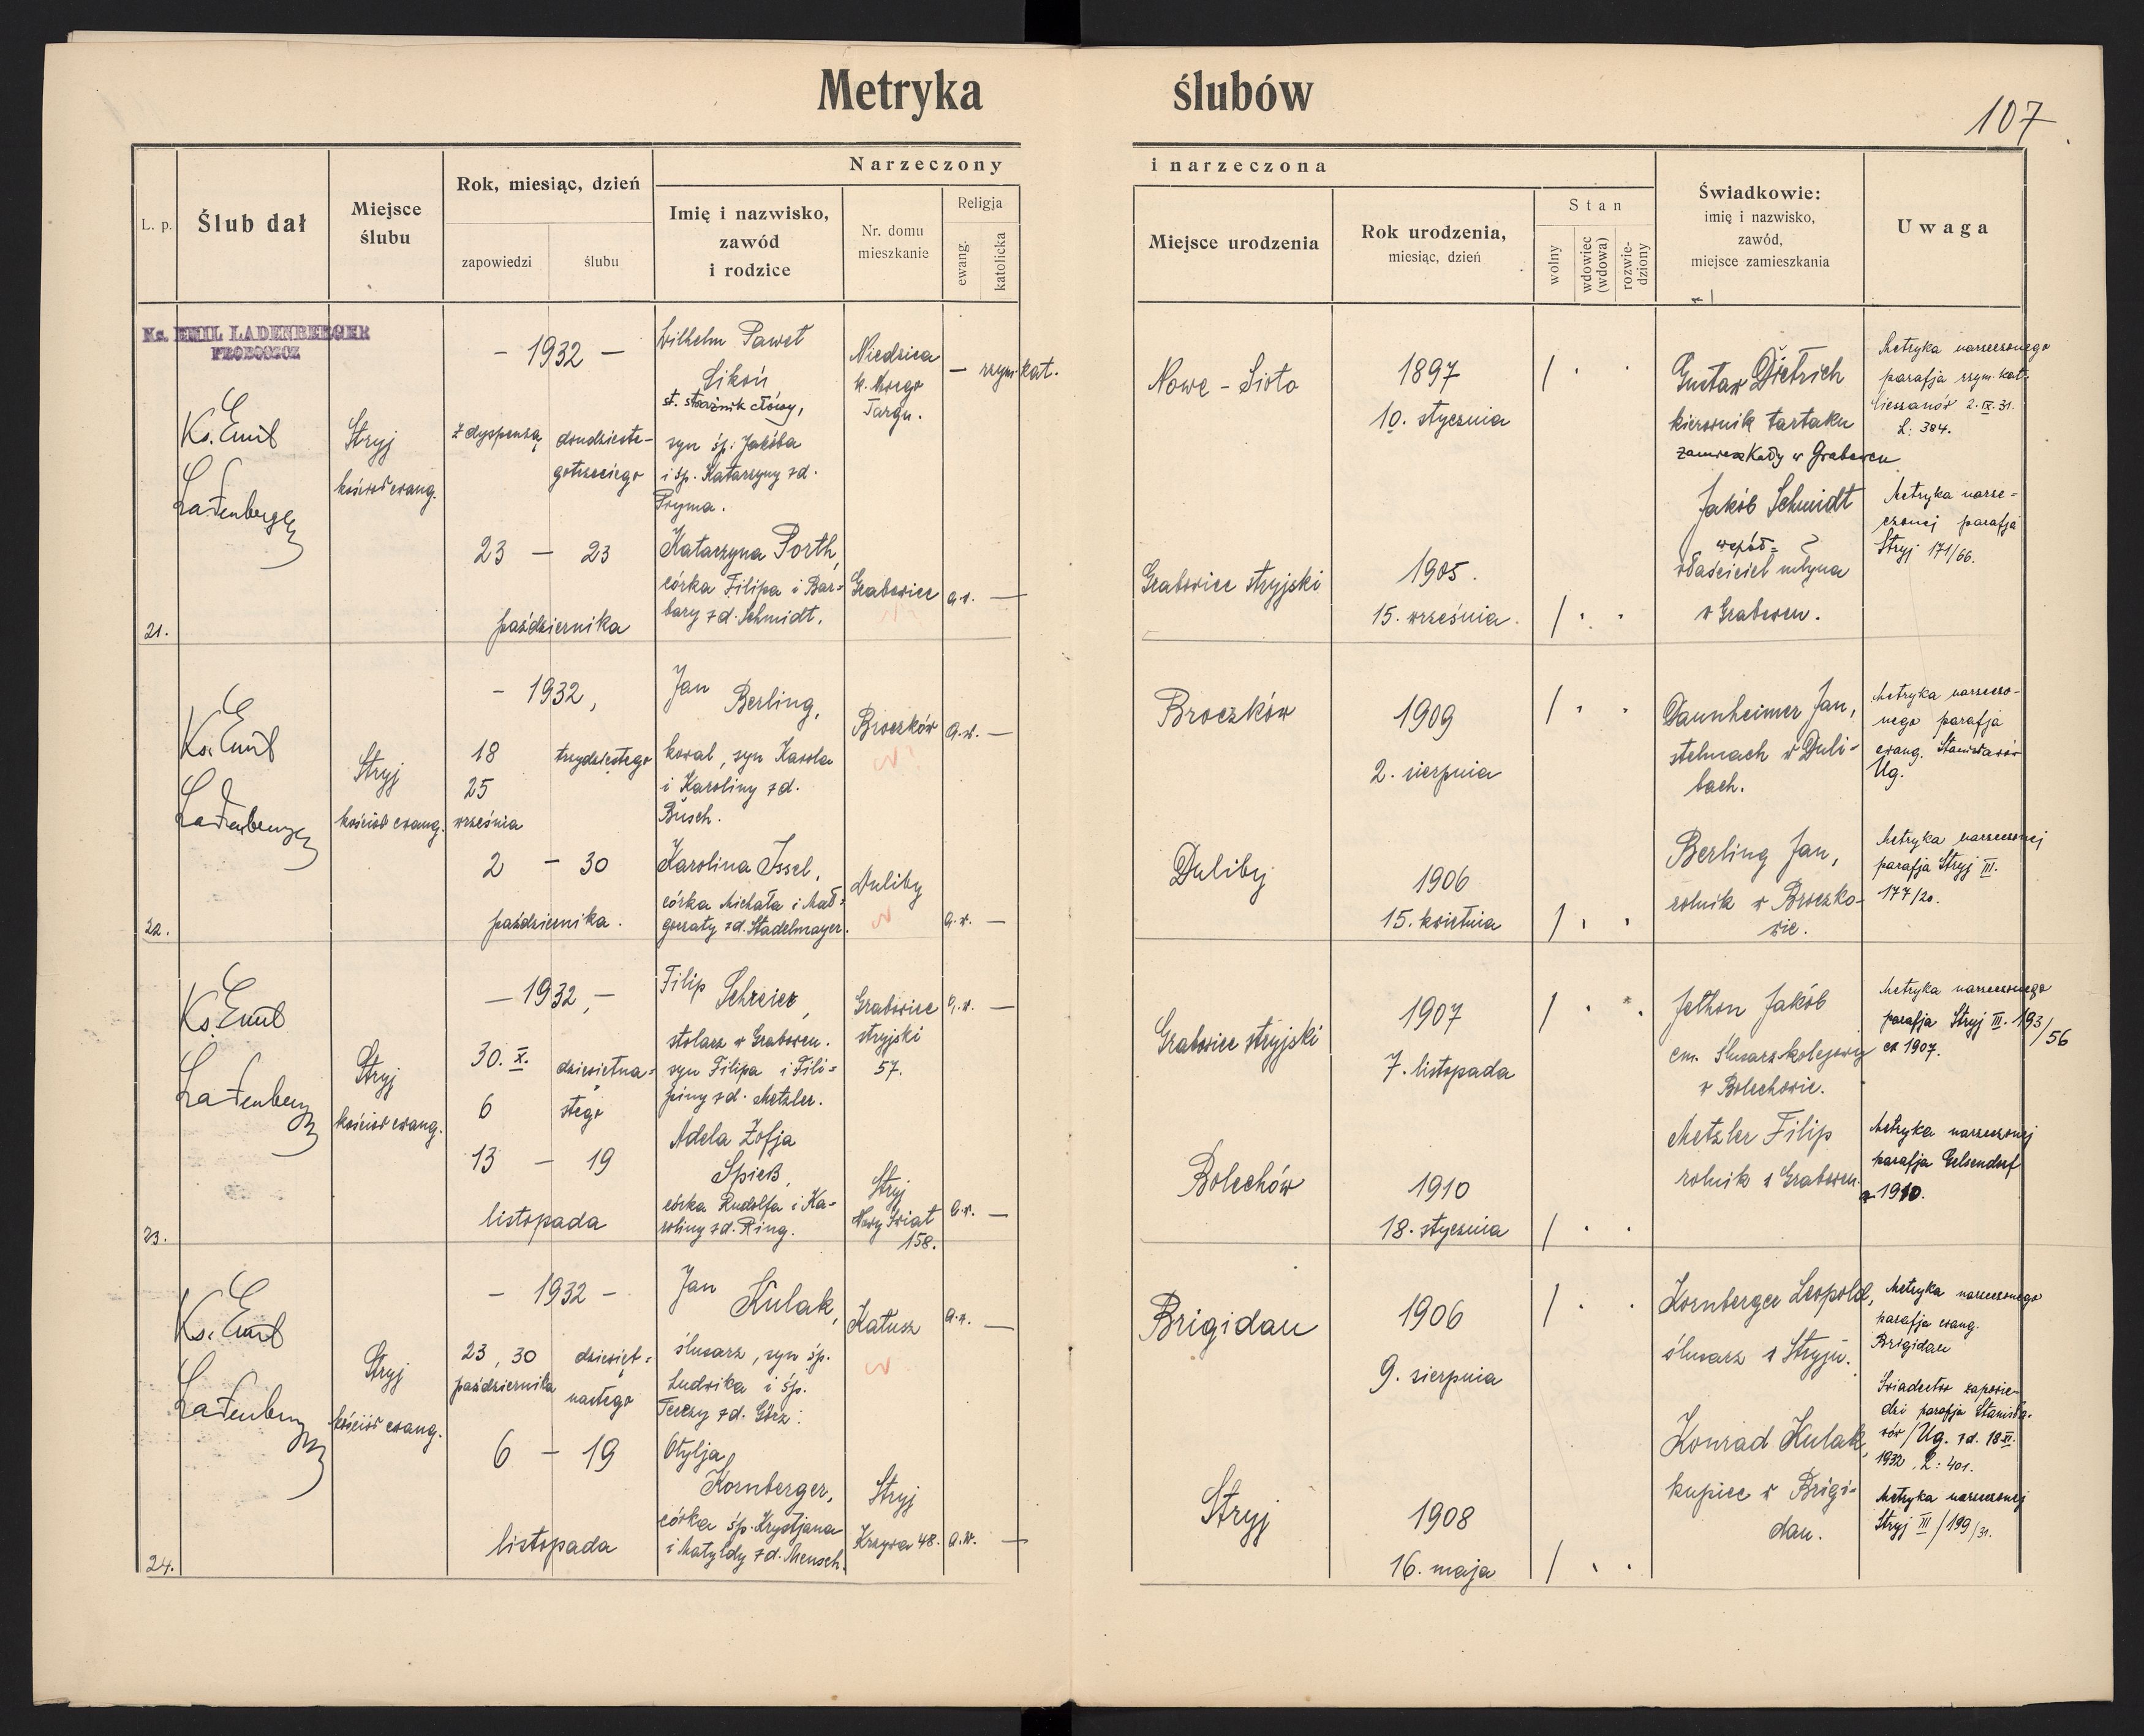 Metryka ślubów
107
Narzeczony i narzeczona
L. p.
Ślub dał
Miejsce
ślubu
Rok, miesiąc, dzień
zapowiedzi
ślubu
Imię i nazwisko,
zawód
i rodzice
Nr. domu
mieszkanie
Religja
ewang.
katolicka
Miejsce urodzenia
Rok urodzenia,
miesiąc, dzień
Stan
wolny
wdowiec
(wdowa)
rozwie-
dziony
Świadkowie:
imię i nazwisko,
zawód,
miejsce zamieszkania
Uwaga
Ks. EMIL LADENBERGER
PROBOSZCZ
21.
Ks. Emil
Ladenberger
Stryj
kościoł ewang.
- 1932 -
z dyspenzą
dwudzieste-
gotrzeciego
23 - 23
października
Wilhelm Paweł
Sikoń
st. strażnik cłowy,
syn śp. Jakóba
i śp. Katarzyny zd.
Pryma.
Niedzica
k. Nowego
Targu.
- rzym. kat.
Nowe - Sioło
1897
10. stycznia
/
Gustaw Dietrich
kierownik tartaku
zamieszkały w Grabowcu
Metryka narzeczonego
parafja rzym. kat.
Cieszanów 2.IX.31.
L: 384.
Katarzyna Porth,
córka Filipa i Bar-
bary zd. Schmidt.
Grabowiec
a.w. -
Grabowiec stryjski
1905.
15. września.
/
Jakób Schmidt
współ-
właściciel młyna
w Grabowcu.
Metryka narze-
czonej parafja
Stryj 171/66.
22.
Ks. Emil
Ladenberger
Stryj
kościoł ewang.
- 1932,
18
25
września
trzydziestego
2 - 30
października.
Jan
Berling,
kowal, syn Karola
i Karoliny zd.
Busch.
Broczków
a.w. -
Broczków
1909
2. sierpnia
/
Dannheimer Jan,
stelmach w Duli-
bach.
Metryka narzeczo-
nego parafja
ewang. Stanisławów
Ug.
Karolina Issel,
córka Michała i Mał-
gorzaty zd. Stadelmayer.
Duliby
a.w. -
Duliby
1906
15. kwietnia
/
Berling Jan,
rolnik w Broczko-
wie.
Metryka narzeczonej
parafja Stryj III.
177/20.
23.
Ks. Emil
Ladenberger
Stryj
kościoł ewang.
- 1932, -
30. X.
6
dziewiętna-
stego
13 - 19
listopada
Filip
Schreier,
stolarz w Grabowcu.
syn Filipa i Fili-
piny zd. Metzler.
Grabowiec
stryjski
57.
a.w. -
Grabowiec stryjski
1907
7. listopada
/
Jethon Jakób
em. ślusarz kolejowy
w Bolechowie.
Metryka narzeczonego
parafja Stryj III. 193/56
ex 1907.
Adela Zofja
Spieß,
córka Rudolfa i Ka-
roliny zd. Ring.
Stryj
Nowy Świat
158.
a.w. -
Bolechów
1910
18. stycznia
/
Metzler Filip
rolnik w Grabowcu.
Metryka narzeczonej
parafja Gelsendorf
1910.
24.
Ks. Emil
Ladenberger
Stryj
kościoł ewang.
- 1932 -
23, 30
października
dziewięt-
nastego
6 - 19
listopada
Jan
Kulak,
ślusarz, syn śp.
Ludwika i śp.
Terezy zd. Görz.
Katusz
a.w. -
Brigidau
1906
9. sierpnia
/
Kornberger Leopold,
ślusarz w Stryju.
Metryka narzeczonego
parafja ewang.
Brigidau
Świadectwo zapowie-
dzi parafja Stanisła-
wów/Ug. zd. 18 XI.
1932, L: 401.
Otylja
Kornberger,
córka śp. Krystjana
i Matyldy zd. Mensch.
Stryj
Krzywa 48.
a.w. -
Stryj
1908
16. maja
/
Konrad Kulak,
kupiec w Brigi-
dau.
Metryka narzeczonej
Stryj III/199/31.